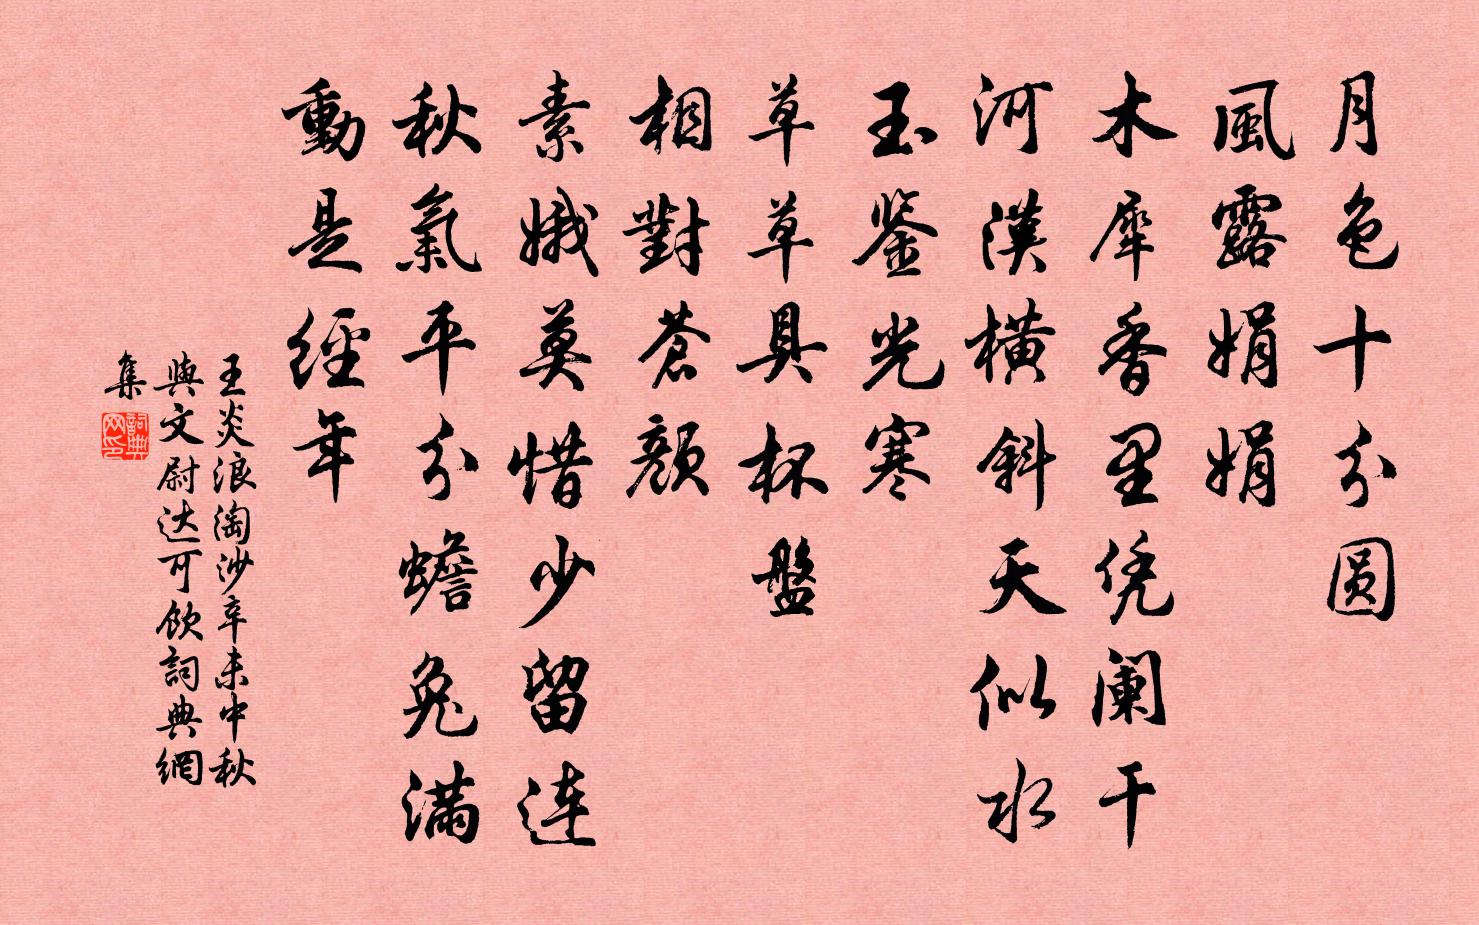 月色十分圆
風露娟娟
木犀香里凭阑干
河漢横斜天似水
玉鉴光寒
草草具杯盤
相對蒼顔
素娥莫惜少留連
秋氣平分蟾兔滿
動是經年
王炎浪淘沙辛未中秋
與文尉达可飲詞典網
集
詞典网印